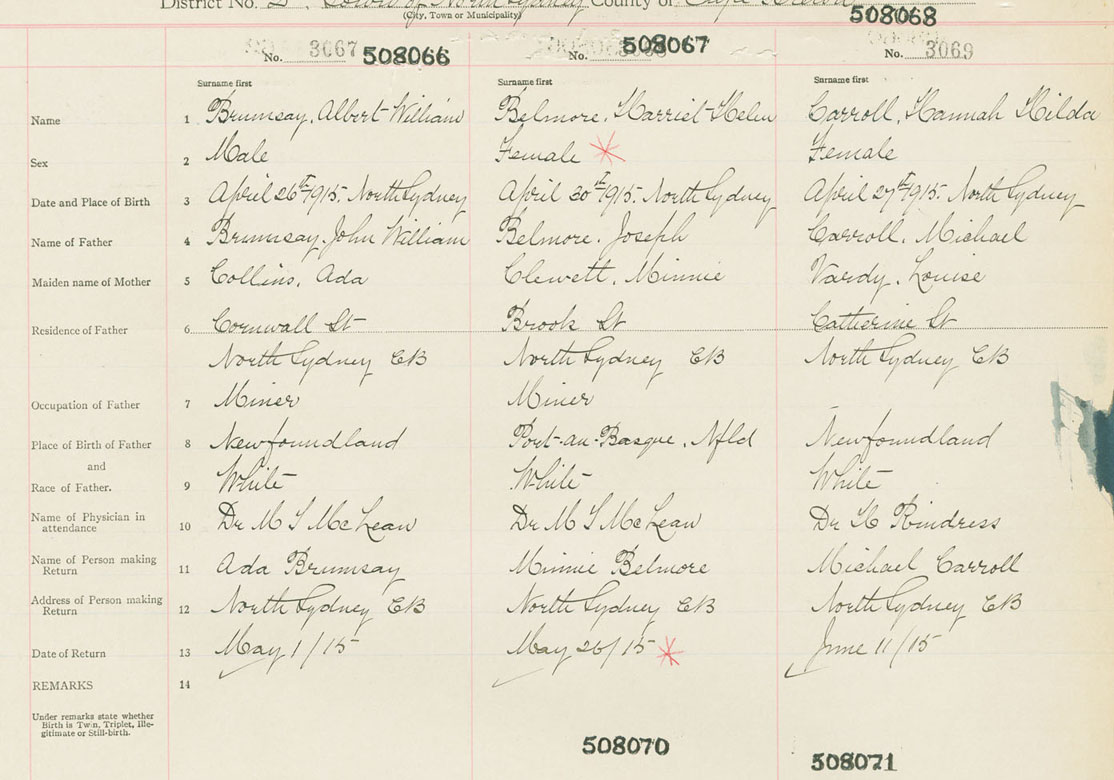 District No. 2. Town of North Sydney County of Cape Breton
(City, Town or Municipality)
508068
No. 3067 508066
No. 508067
No. 3069
Surname first
Surname first
Surname first
Name 1 Brumsay, Albert William Belmore, Harriet Helen Carroll, Hannah Hilda
Sex 2 Male Female Female
Date and Place of Birth 3 April 26th 1915. North Sydney April 30th 1915. North Sydney April 27th 1915. North Sydney
Name of Father 4 Brumsay, John William Belmore, Joseph Carroll, Michael
Maiden name of Mother 5 Collins, Ada Clewett, Minnie Vardy, Louise
Residence of Father 6 Cornwall St Brook St Catherine St
North Sydney CB North Sydney CB North Sydney CB
Occupation of Father 7 Miner Miner
Place of Birth of Father 8 Newfoundland Port-au-Basque, Nfld Newfoundland
and
Race of Father. 9 White White White
Name of Physician in
attendance 10 Dr M S McLean Dr M S McLean Dr Rindress
Name of Person making
Return 11 Ada Brumsay Minnie Belmore Michael Carroll
Address of Person making
Return 12 North Sydney CB North Sydney CB North Sydney CB
Date of Return 13 May 1/15 May 26/15 June 11/15
REMARKS 14
Under remarks state whether
Birth is Twin, Triplet, Ille-
gitimate or Still-birth.
508070
508071